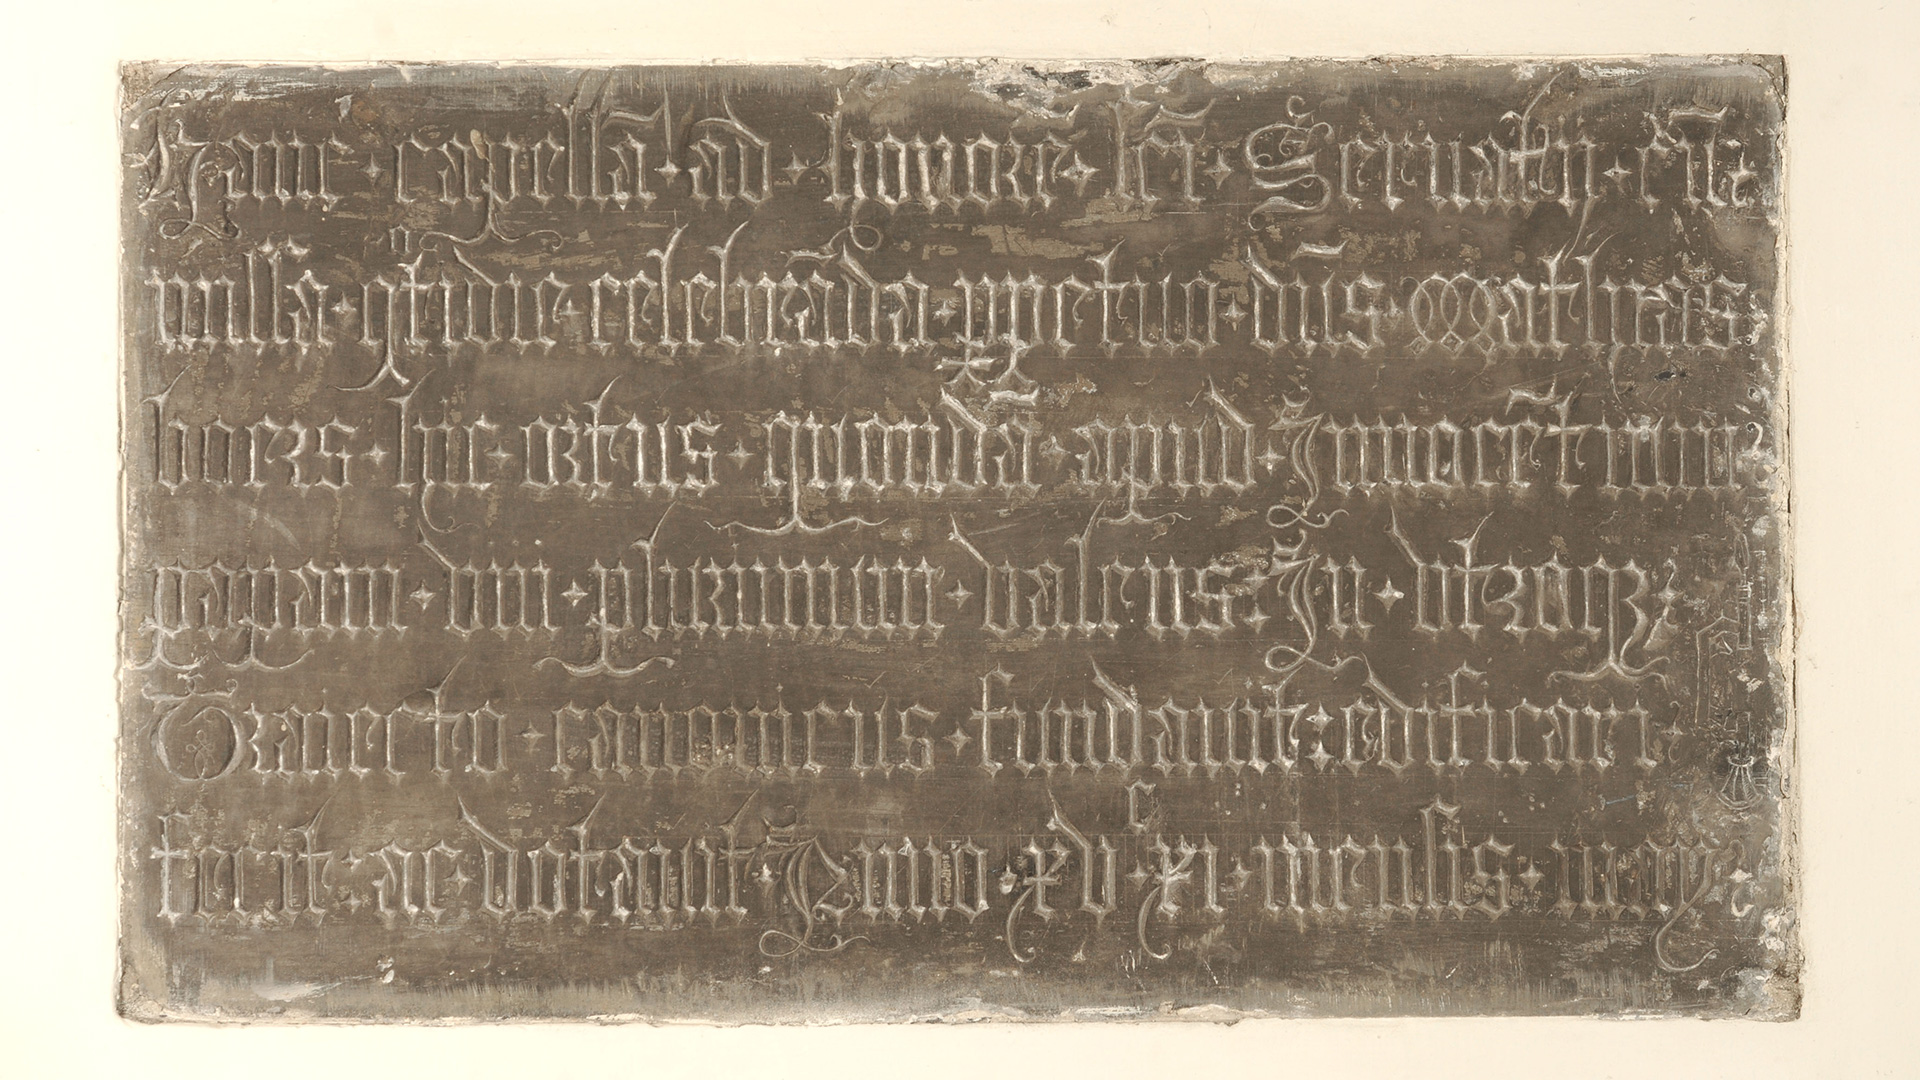 Hanc · capellā · ad · honorē · sc̄i · Seruatij · cū ·
missa · qͦtidie · celebrāda · ꝑpetuo · dn̄s · Mathias
boers · hic · ortus · quondā · apud · Innocētium
papam · viii · plurimum · valens : In · vtroqꝫ
Traiecto · canonicus · fundauit : edificari
fecit : ac · dotauit · Anno · xvᶜ · xi · mensis · maij ·